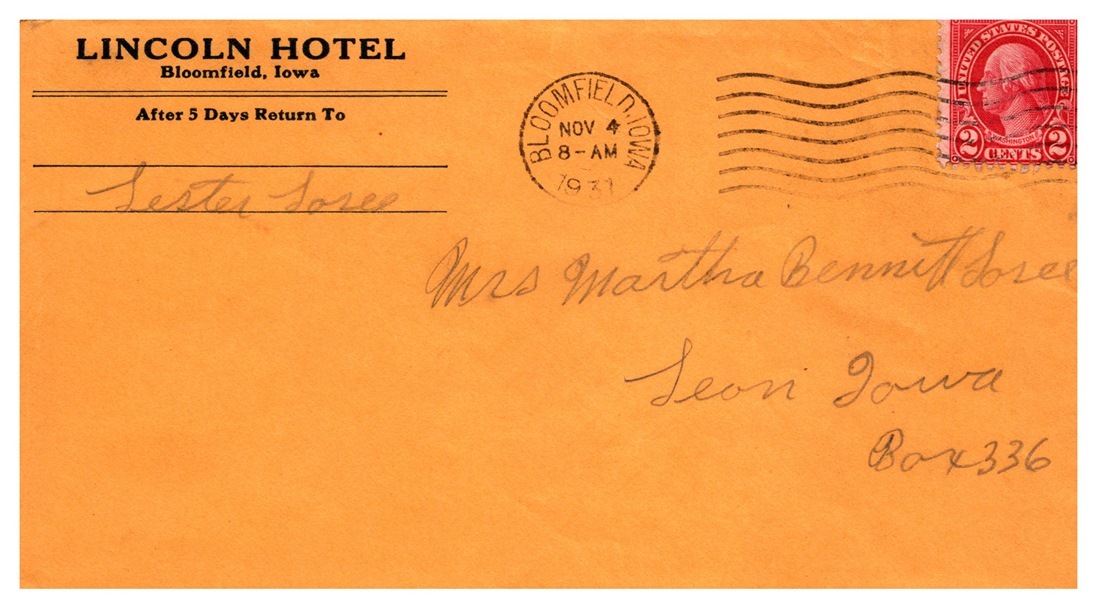 LINCOLN HOTEL
Bloomfield, Iowa
After 5 Days Return To
Lester Losee
BLOOMFIELD, IOWA
NOV 4
8-AM
1931
UNITED STATES POSTAGE
WASHINGTON
2 CENTS 2
Mrs Martha Bennett Losee
Leon Iowa
Box 336